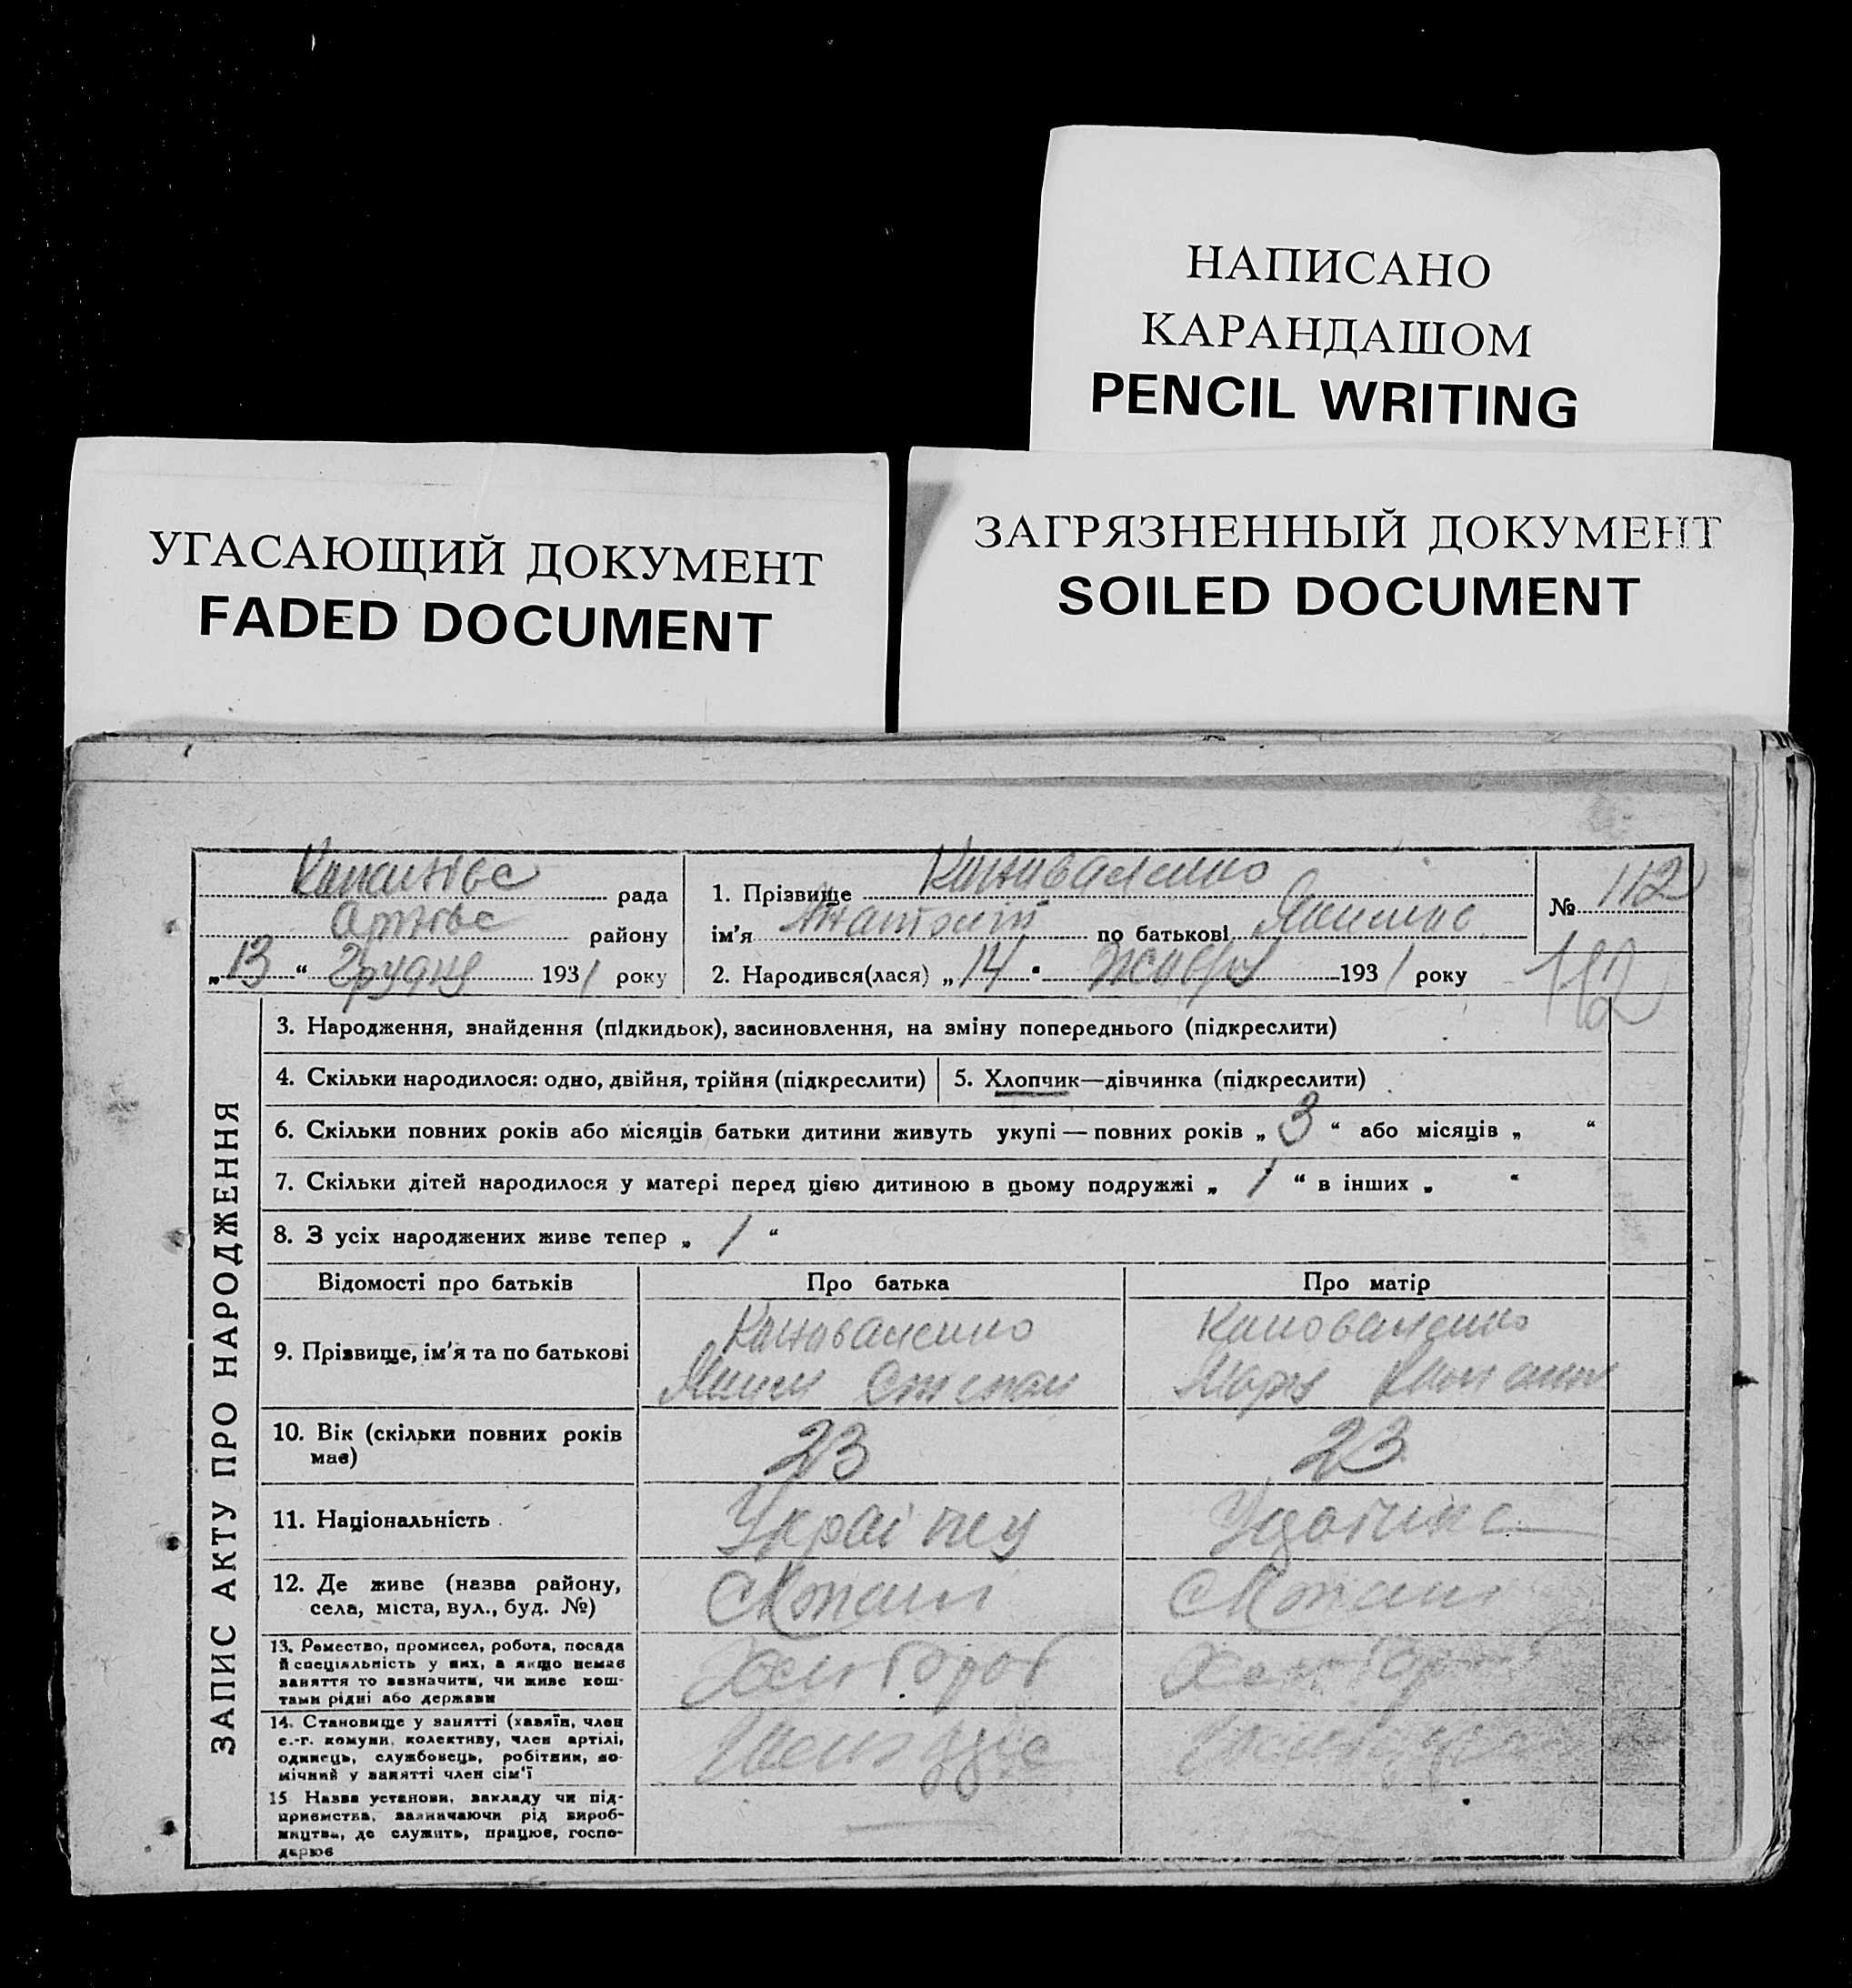 НАПИСАНО
КАРАНДАШОМ
PENCIL WRITING
УГАСАЮЩИЙ ДОКУМЕНТ
FADED DOCUMENT
ЗАГРЯЗНЕННЫЙ ДОКУМЕНТ
SOILED DOCUMENT
рада
району
„13“ Грудня 1931 року
1. Прізвище Коноваленко
ім'я Анатолій по батькові
2. Народився(лася) „14“ 1931 року
№ 112
112
ЗАПИС АКТУ ПРО НАРОДЖЕННЯ
3. Народження, знайдення (підкидьок), засиновлення, на зміну попереднього (підкреслити)
4. Скільки народилося: одно, двійня, трійня (підкреслити)
5. Хлопчик—дівчинка (підкреслити)
6. Скільки повних років або місяців батьки дитини живуть укупі — повних років „3“ або місяців „ “
7. Скільки дітей народилося у матері перед цією дитиною в цьому подружжі „1“ в інших „ “
8. З усіх народжених живе тепер „1“
Відомості про батьків
Про батька
Про матір
9. Прізвище, ім'я та по батькові
Коноваленко
Степан
Коноваленко
10. Вік (скільки повних років
має)
23
23
11. Національність
12. Де живе (назва району,
села, міста, вул., буд. №)
13. Ремество, промисел, робота, посада
й спеціяльність у них, а якщо немає
заняття то зазначити, чи живе кош-
тами рідні або держави
Хлібороб
Хлібороб
14. Становище у занятті (хазяїн, член
с.-г. комуни, колективу, член артілі,
одинець, службовець, робітник, по-
мічний у занятті член сім'ї
15 Назва установи, закладу чи під-
приємства, зазначаючи рід вироб-
ництва, де служить, працює, госпо-
дарює